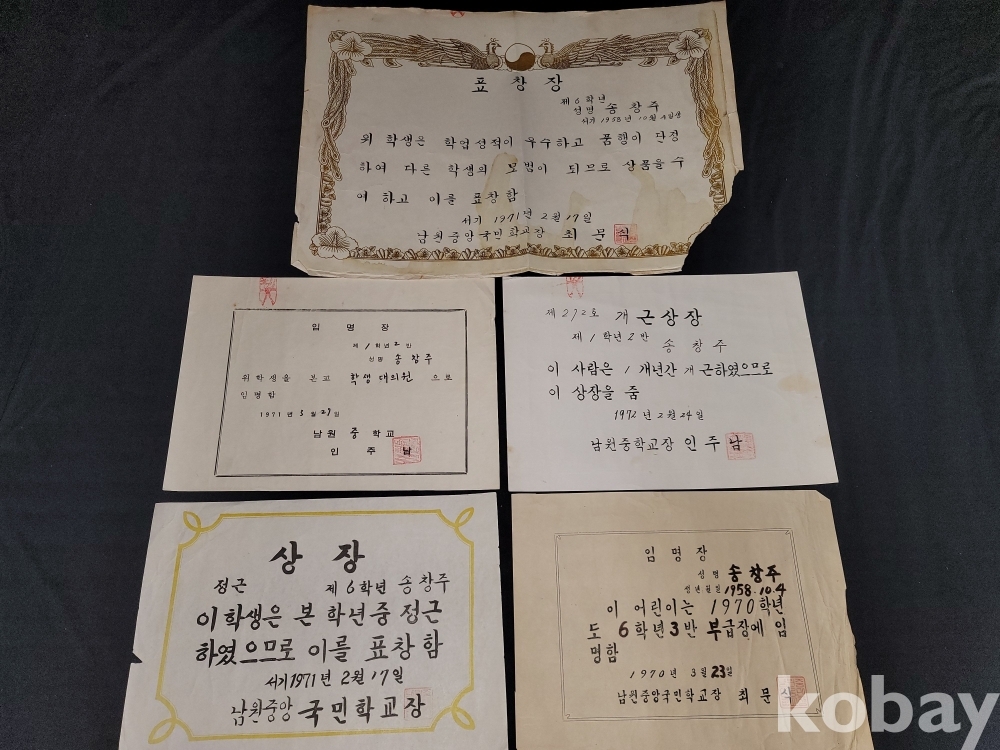 표창장
제6학년
성명 송창주
서기 1958년 10월 4일생
위 학생은 학업성적이 우수하고 품행이 단정
하여 다른 학생의 모범이 되므로 상품을 수
여 하고 이를 표창함
서기 1971년 2월 17일
남원중앙국민학교장 최문식
임명장
제1학년2반
성명 송창주
위학생을 본교 학생대의원 으로
임명함
1971년 3월 29일
남원중학교
인주남
제272호 개근상장
제1학년2반 송창주
이 사람은 1개년간 개근하였으므로
이 상장을 줌
1972년 2월 24일
남원중학교장 인주남
상장
정근 제6학년 송창주
이학생은 본 학년중 정근
하였으므로 이를 표창함
서기1971년 2월 17일
남원중앙국민학교장
임명장
성명 송창주
생년월일 1958.10.4
이 어린이는 1970학년
도 6학년3반 부급장에 임
명함
1970년 3월 23일
남원중앙국민학교장 최문식
kobay